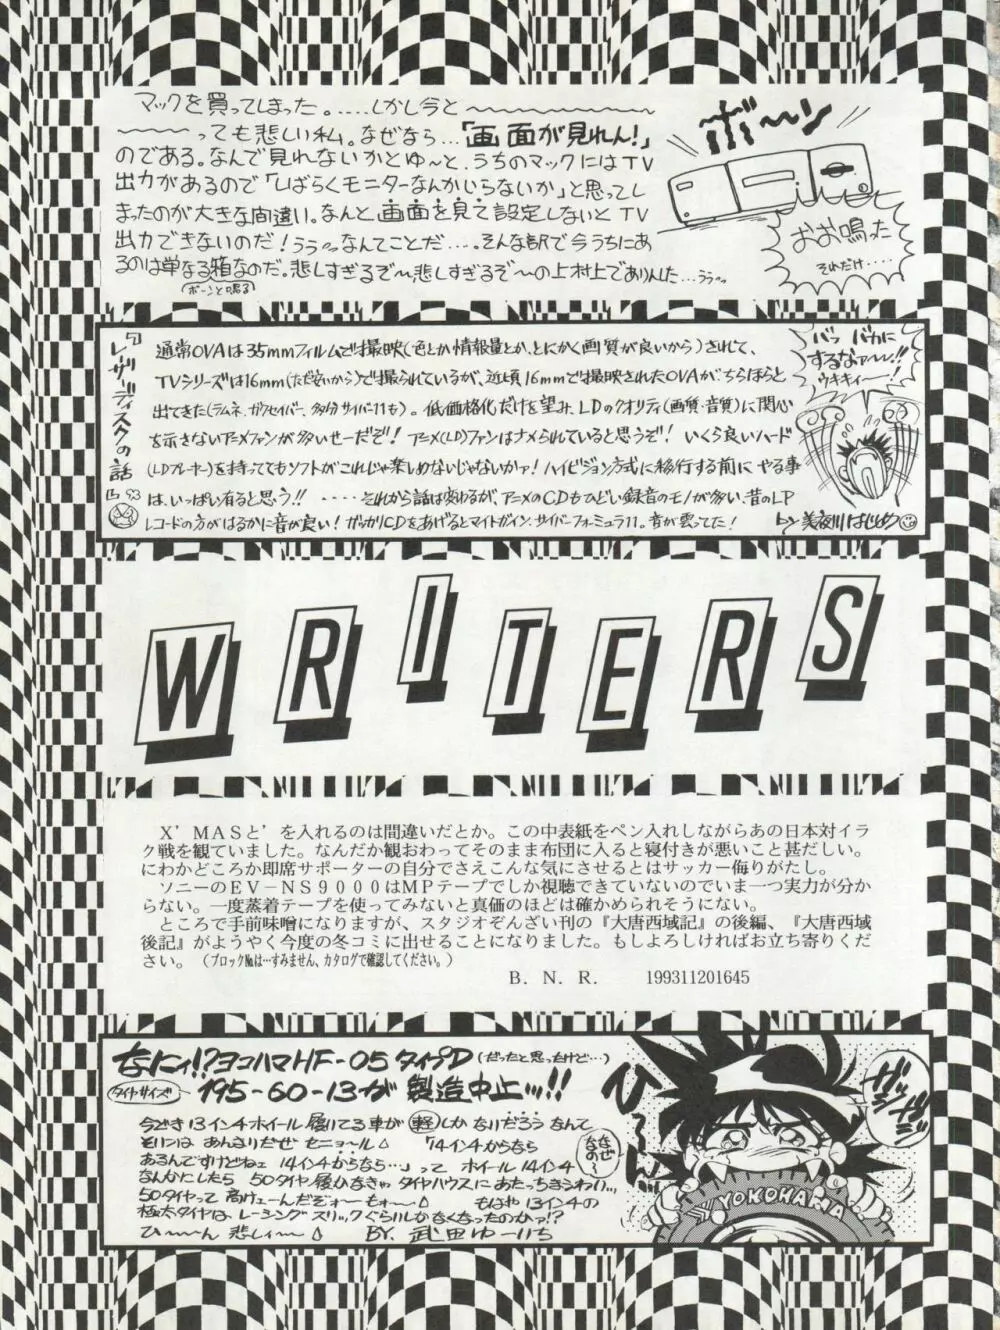 マックを買ってしまった。.....しかし今と〜〜〜〜〜〜
〜〜〜〜っても悲しい私。なぜなら...「画面が見れん!」
のである。なんで見れないかとゆ〜と、うちのマックにはTV
出力があるので「しばらくモニターなんかいらないか」と思ってし
まったのが大きな間違い。なんと、画面を見て設定しないとTV
出力できないのだ!ううっっなんてことだ....。そんな訳で今うちにあ
るのは単なる箱なのだ。悲しすぎるぞ〜悲しすぎるぞ〜の上村上でありんした...うぅっっ
(ボーンと鳴る)
ボーン
おお鳴った
それだけ....
『レーザーディスクの話』
通常OVAは35mmフィルムで撮映(色とか情報量とか、とにかく画質が良いから)されて、
TVシリーズは16mm(ただ安いから)で撮られているが、近頃16mmで撮映されたOVAがちらほらと
出てきた(ラムネ、ガクセイバー、多分サイバー11も)。低価格化だけを望み、LDのクオリティ(画質・音質)に関心
を示さないアニメファンが多いせーだぞ!アニメ(LD)ファンはナメられていると思うぞ!いくら良いハード
(LDプレーヤー)を持っててもソフトがこれじゃ楽しめないじゃないかァ!ハイビジョン方式に移行する前にやる事
は、いっぱい有ると思う!!....それから話は変わるが、アニメのCDもひどい録音のモノが多い、昔のLP
レコードの方がはるかに音が良い!ガッカリCDをあげるとマイトガイン、サイバーフォーミュラ11。音が曇ってた!
by 美夜川はじめ
'93
バッ バカに
するなァ〜ッ!!
ウキキィ〜ー!
WRITERS
X'MASと'を入れるのは間違いだとか。この中表紙をペン入れしながらあの日本対イラ
ク戦を観ていました。なんだか観おわってそのまま布団に入ると寝付きが悪いこと甚だしい。
にわかどころか即席サポーターの自分でさえこんな気にさせるとはサッカー侮りがたし。
ソニーのEV−NS9000はMPテープでしか視聴できていないのでいま一つ実力が分か
らない。一度蒸着テープを使ってみないと真価のほどは確かめられそうにない。
ところで手前味噌になりますが、スタジオぞんざい刊の『大唐西域記』の後編、『大唐西域
後記』がようやく今度の冬コミに出せることになりました。もしよろしければお立ち寄りくだ
さい。(ブロック№は…すみません、カタログで確認してください。)
B. N. R. 199311201645
なにィ!?ヨコハマHF-05タイプD(だったと思ったけど...)
タイヤサイズ 195-60-13が製造中止ッ!!
今どき13インチホイール履いてる車が(軽)しかないだろうなんて
そりゃあんまりだぜセニョール 「14インチからなら
あるんですけどねェ14インチからなら...」って ホイール14インチ
なんかにしたら50タイヤ履かなきゃタイヤハウスにあたっちまうわいっ、
50タイヤって高けェーんだぞォーもォー もはや13インチの
極太タイヤは、レーシングスリックぐらいしかなくなったのかァ!?
ひ〜〜ん悲しィ〜 BY. 武田ゆーいち
なぜなの〜
ひ〜ん
ガジガジ
YOKOHAMA